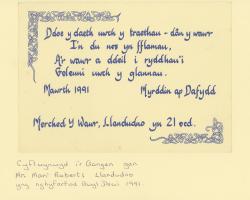 Ddoe y daeth uwch y traethau - dân y wawr
I'n du nos yn fflamau,
A'r wawr a ddeil i ryddhau'i
Goleuni uwch y glannau.
Mawrth 1991 Myrddin ap Dafydd
Merched Y Wawr, Llandudno yn 21 oed.
Cyflwynwyd i'r Gangen gan
Mrs Mari Roberts Llandudno
yng nghyfarfod Gŵyl Dewi 1991.